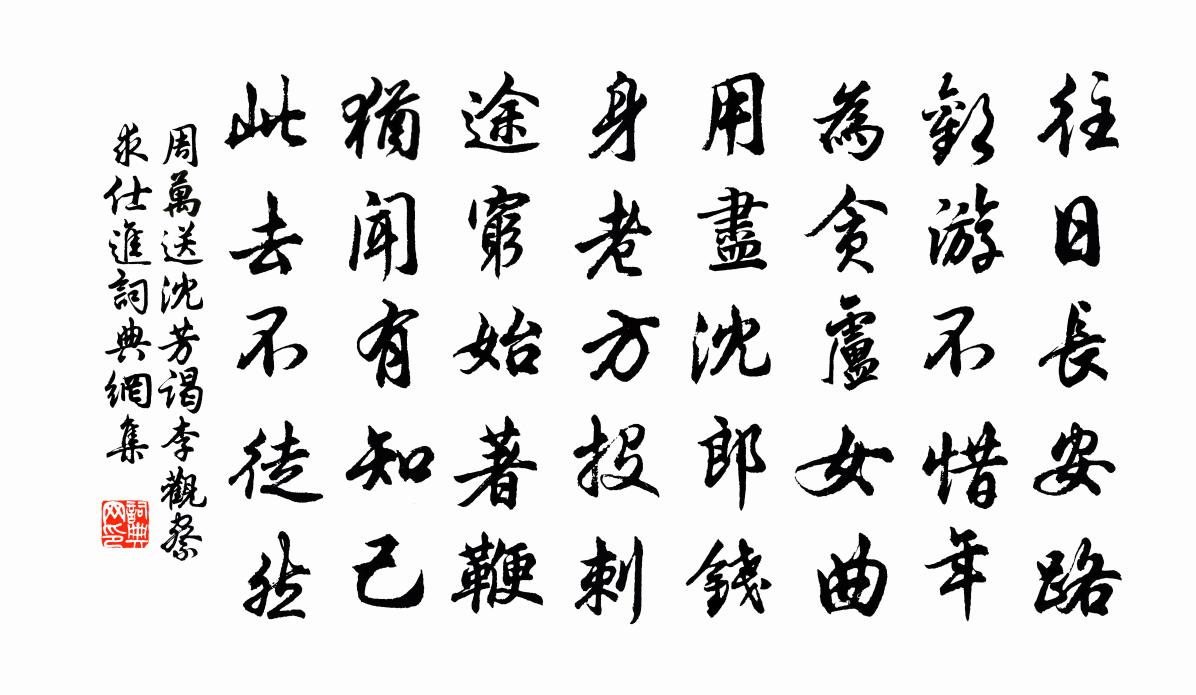 往日長安路
歡游不惜年
為貪盧女曲
用盡沈郎錢
身老方投刺
途窮始著鞭
猶聞有知己
此去不徒然
周萬送沈芳謁李觀察
求仕進詞典網集
詞典
网印